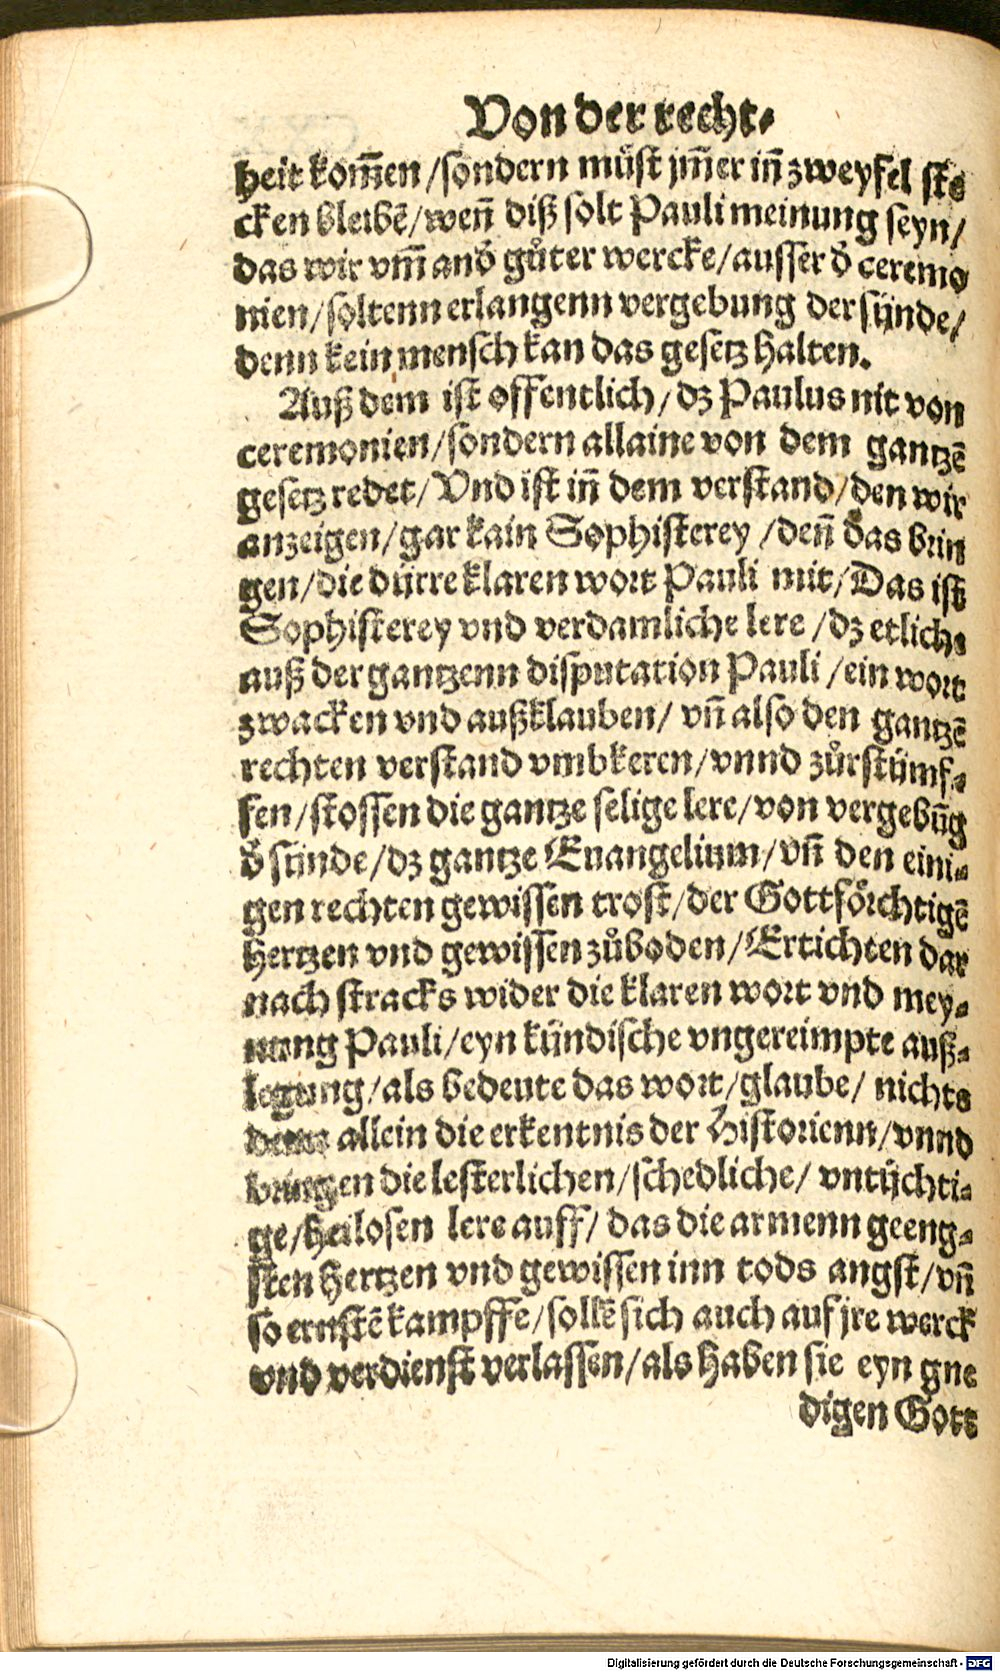 Von der recht⸗
heit kom̃en /sondern můst jm̃er iñ zweyfel ste
cken bleibẽ/weñ diß solt Pauli meinung seyn/
das wir vm̃ anď gůter wercke/ausser ď ceremo
nien/soltenn erlangenn vergebung der sünde/
denn kein mensch kan das gesetz halten.
Auß dem ist offentlich/dz Paulus nit von
ceremonien/sondern allaine von dem gantzẽ
gesetz redet/Vnd ist iñ dem verstand/den wir
anzeigen/gar kain Sophisterey /deñ das brin
gen/die dürre klaren wort Pauli mit/Das ist
Sophisterey vnd verdamliche lere /dz etliche
auß der gantzenn disputation Pauli /ein wort
zwacken vnd außklauben/ vñ also den gantzẽ
rechten verstand vmbkeren/vnnd zůrstümf⸗
fen/stossen die gantze selige lere/von vergebũg
ď sünde/dz gantze Euangelium/vñ den eini⸗
gen rechten gewissen trost/der Gottförchtigẽ
hertzen vnd gewissen zůboden/Ertichten dar
nach stracks wider die klaren wort vnd mey⸗
nung Pauli/eyn kündische vngereimpte auß⸗
legung/als bedeute das wort/glaube/ nichts
denn allein die erkentnis der Historienn/vnnd
bringen die lesterlichen/schedliche/ vntüchti⸗
ge/heilosen lere auff/ das die armenn geeng⸗
sten hertzen vnd gewissen inn tods angst/vñ
so ernstẽ kampffe/sollẽ sich auch auf jre werck
vnd verdienst verlassen/als haben sie eyn gne
digen Gott
Digitalisierung gefördert durch die Deutsche Forschungsgemeinschaft - DFG